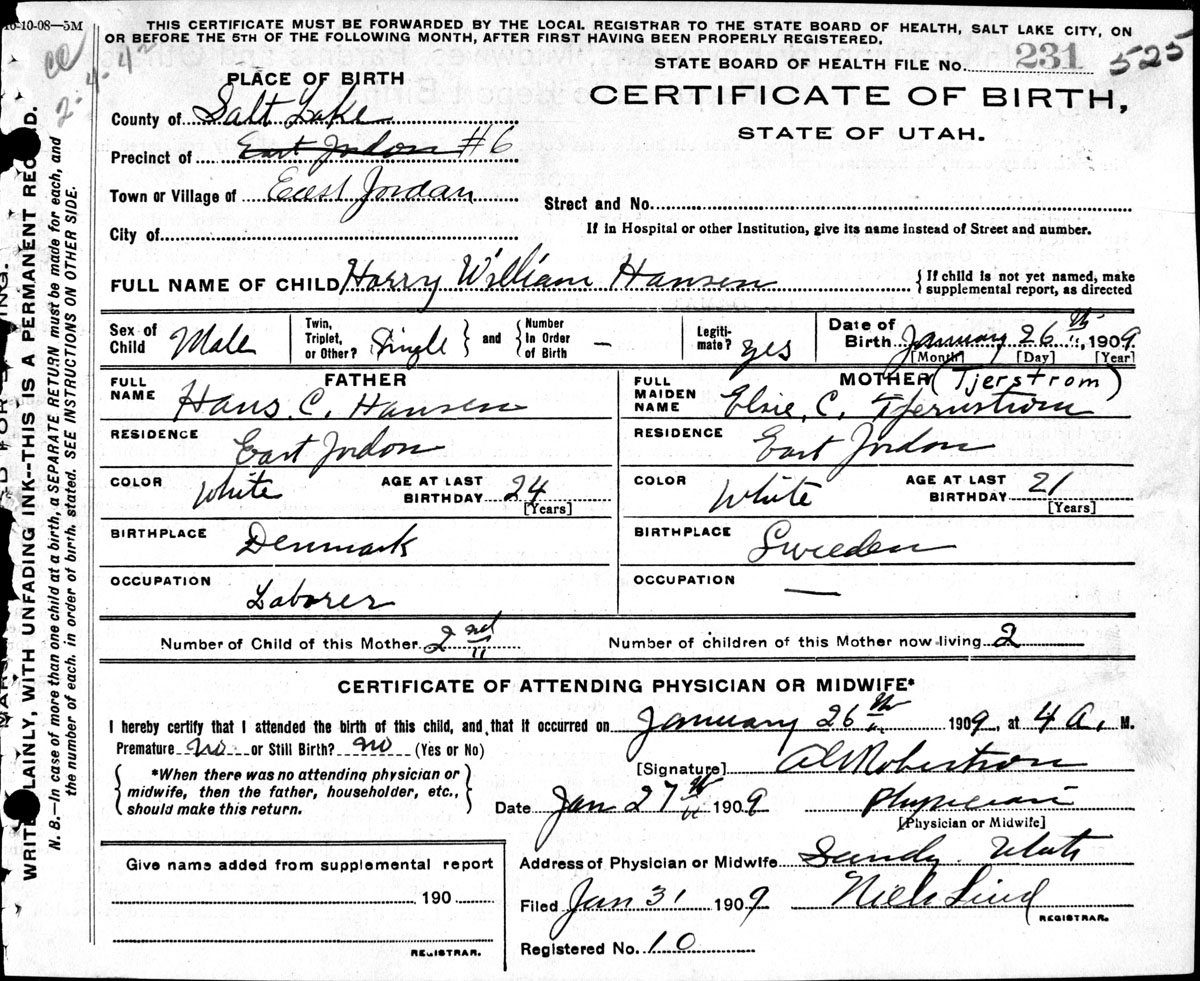 10-10-08—5M
THIS CERTIFICATE MUST BE FORWARDED BY THE LOCAL REGISTRAR TO THE STATE BOARD OF HEALTH, SALT LAKE CITY, ON
OR BEFORE THE 5TH OF THE FOLLOWING MONTH, AFTER FIRST HAVING BEEN PROPERLY REGISTERED,
STATE BOARD OF HEALTH FILE No. 231 525
CERTIFICATE OF BIRTH,
STATE OF UTAH.
PLACE OF BIRTH
County of Salt Lake
Precinct of East Jordon #6
Town or Village of East Jordan
Street and No.
City of
If in Hospital or other Institution, give its name instead of Street and number.
FULL NAME OF CHILD Harry William Hansen
{If child is not yet named, make
supplemental report, as directed
Sex of Child Male
Twin, Triplet, or Other? Single } and { Number In Order of Birth —
Legiti- mate? yes
Date of Birth January 26 th, 1909
[Month] [Day] [Year]
FATHER
FULL NAME Hans C. Hansen
RESIDENCE East Jordon
COLOR White AGE AT LAST BIRTHDAY 24
[Years]
BIRTHPLACE Denmark
OCCUPATION Laborer
MOTHER (Tjerstrom)
FULL MAIDEN NAME Elsie. C. Tjernstrom
RESIDENCE East Jordon
COLOR White AGE AT LAST BIRTHDAY 21
[Years]
BIRTHPLACE Sweeden
OCCUPATION —
Number of Child of this Mother 2 nd
Number of children of this Mother now living 2
CERTIFICATE OF ATTENDING PHYSICIAN OR MIDWIFE*
I hereby certify that I attended the birth of this child, and that it occurred on January 26 th 1909, at 4 A. M.
Premature no or Still Birth? no (Yes or No)
*When there was no attending physician or
midwife, then the father, householder, etc.,
should make this return.
[Signature] Robertson
Date Jan 27 th 1909 Physician
[Physician or Midwife]
Give name added from supplemental report
190
REGISTRAR.
Address of Physician or Midwife Sandy Utah
Filed Jan 31 1909 Niels Lind
REGISTRAR.
Registered No. 10
N. B.—In case of more than one child at a birth, a SEPARATE RETURN must be made for each, and
the number of each, in order of birth, stated. SEE INSTRUCTIONS ON OTHER SIDE.